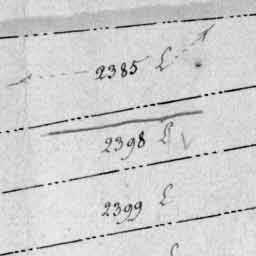 2385 L
2398 L
2399 L
L